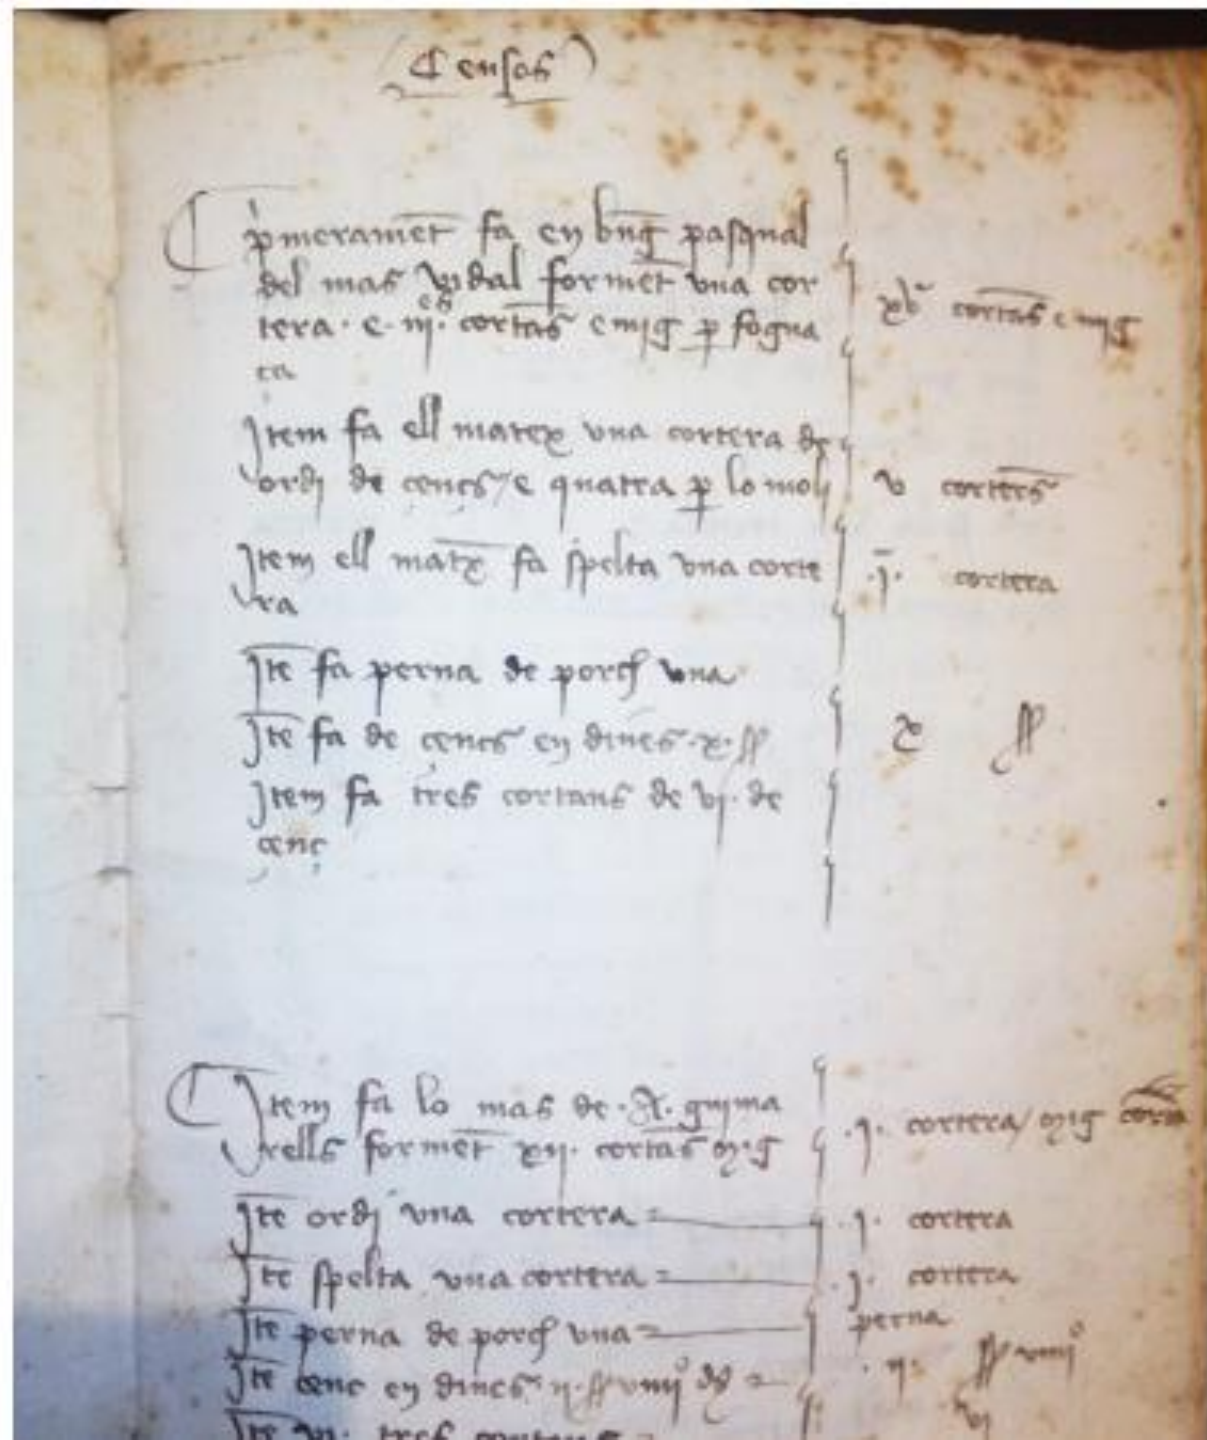 Censos
pmeramet fa en bng pasqual
del mas vidal formet vna cor
tera · e · iij · cortas e mig p fogua
es
ça
xv cortas e mig
Item fa ell matex vna cortera de
ordj de çençs / e quatra p lo molj
v corters
Item ell matx fa spelta vna corte
ra
.j. cortera
Ite fa perna de porch vna
Ite fa de çencs en dines · x · ss
x ss
Item fa tres cortans de vj · de
çenç
Item fa lo mas de · A · guima
rells formet xij · cortas mig
.j. cortera / mig
Ite ordj vna cortera =
.j. cortera
Ite spelta vna cortera =
.j. cortera
Ite perna de porch vna =
perna
Ite cenc en dines ij · ss viiijo ds =
· ij · ss viiijo
vj
Ite vj · tres cortans =